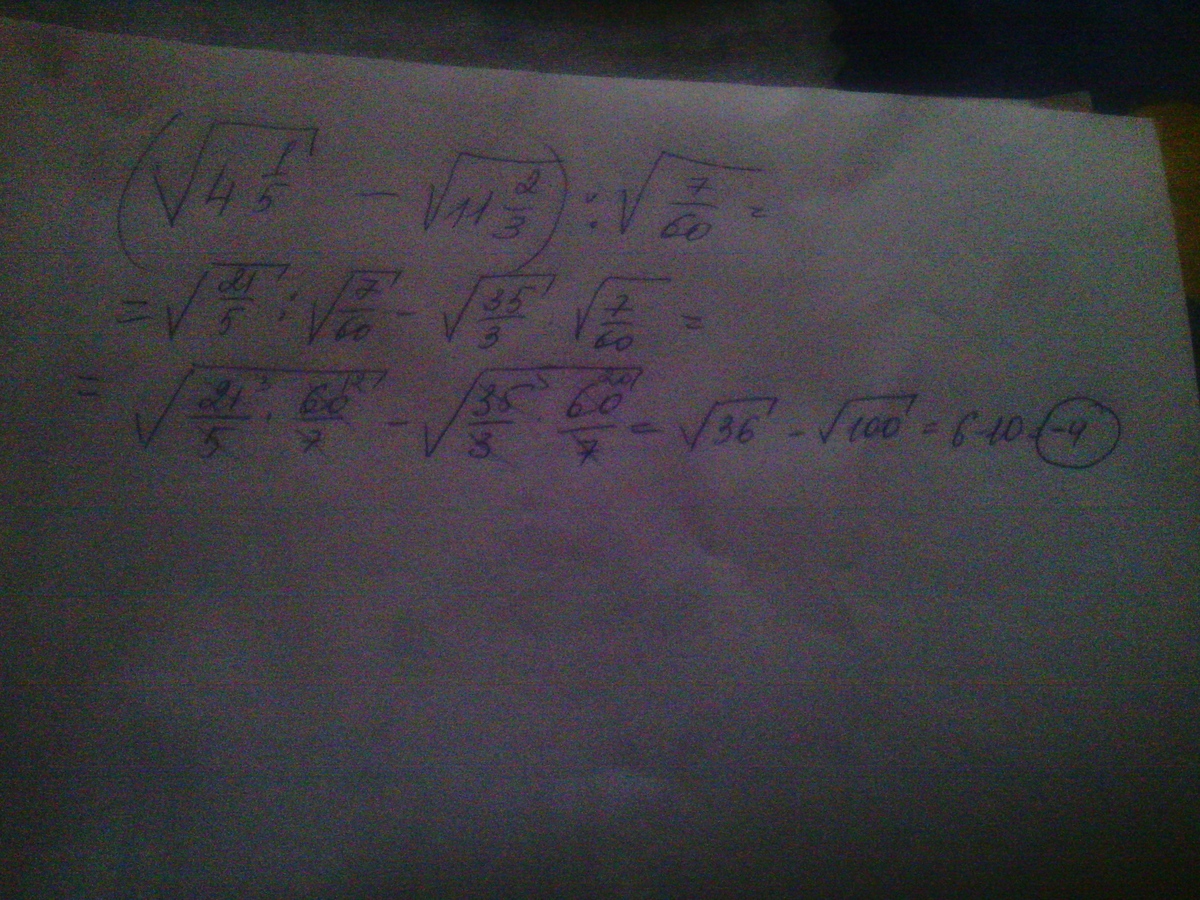 (√4 1/5 − √11 2/3) : √7/60 =
= √21/5 : √7/60 − √35/3 · √7/60 =
= √21³/5 · 60¹²/7 − √35⁵/3 · 60²⁰/7 = √36 − √100 = 6-10 = -4